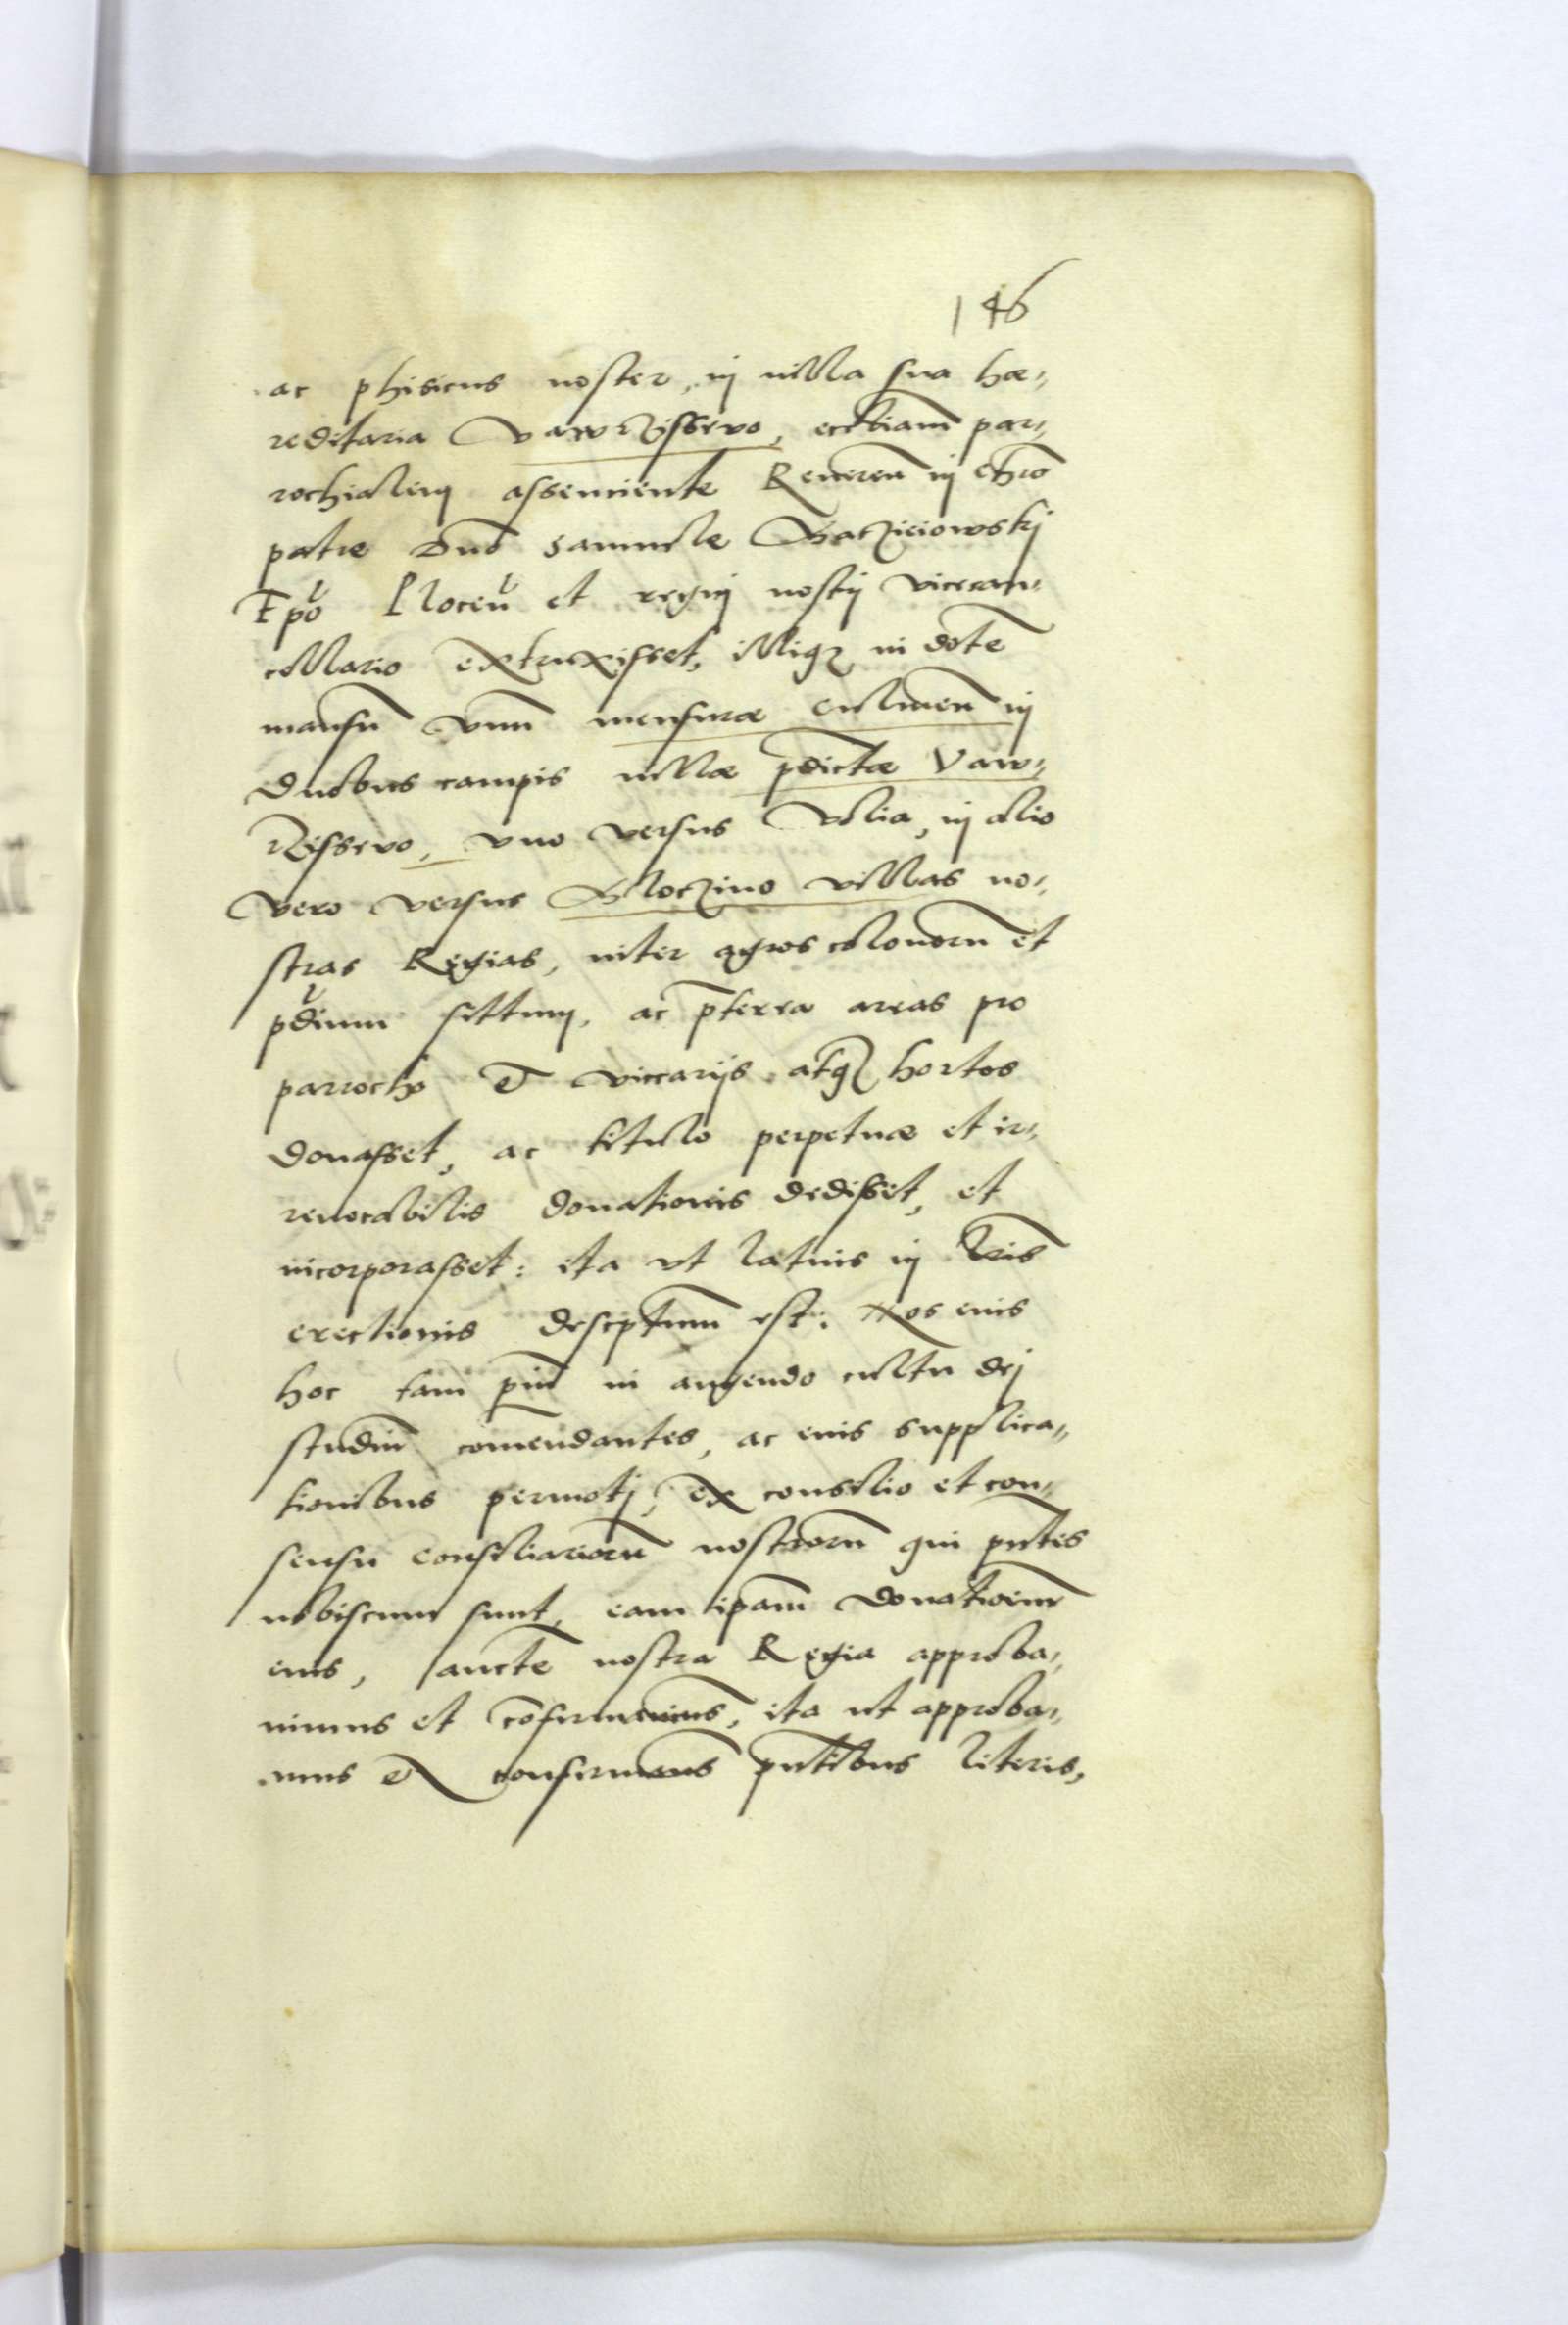 146
ac phisicus noster, in villa sua hæ„
reditaria Vawrzissevo, eccliam par„
rochialem assenciente Reveren in Chro
patre Dno Samuele Maczieiowskj
Epo Plocen et regnj nostrj vicecan„
cellario extruxisset, illiqz in dotem
mansu vnu mensuræ Culmen in
duobus campis villæ pdictæ Vaw„
rzissevo, vno versus Volia, in alio
vero versus Mloczino villas no„
stras Regias, inter agros colonoru et
pdium sittum, ac pterea areas pro
parrocho et viccarijs atqz hortos
donasset, ac titulo perpetuæ et ir„
revocabilis donationis dedisset, et
incorporasset: ita vt latius in lris
erectionis descptum est: Nos eius
hoc tam piu in augendo cultu dej
studiu comendantes, ac eius supplica„
tionibus permotj, ex consilio et con„
sensu consiliarioru nostroru qui pntes
nobiscum sunt, eam ipam donatioem
eius, aucte nostra Regia approba„
uimus et cofirmauimus, ita ut approba„
mus et confirmamus pntibus literis,